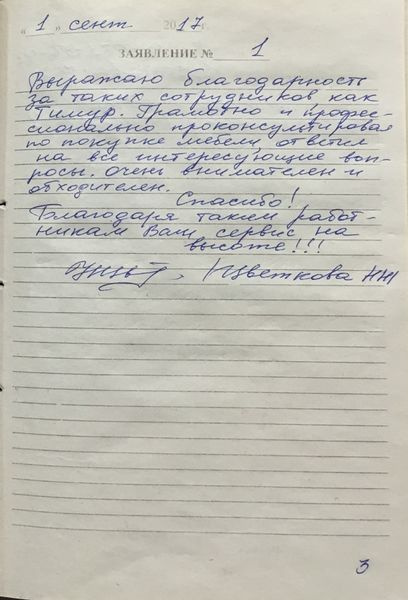 "1" сент 2017 г.
ЗАЯВЛЕНИЕ № 1
Выражаю благодарность
за таких сотрудников как
Тимур. Грамотно и профес-
сионально проконсультировал
по покупке мебели, ответил
на все интересующие воп-
росы. Очень внимателен и
обходителен.
Спасибо!
Благодаря таким работ-
никам Ваш сервис на
высоте!!!
Цветкова НН
3